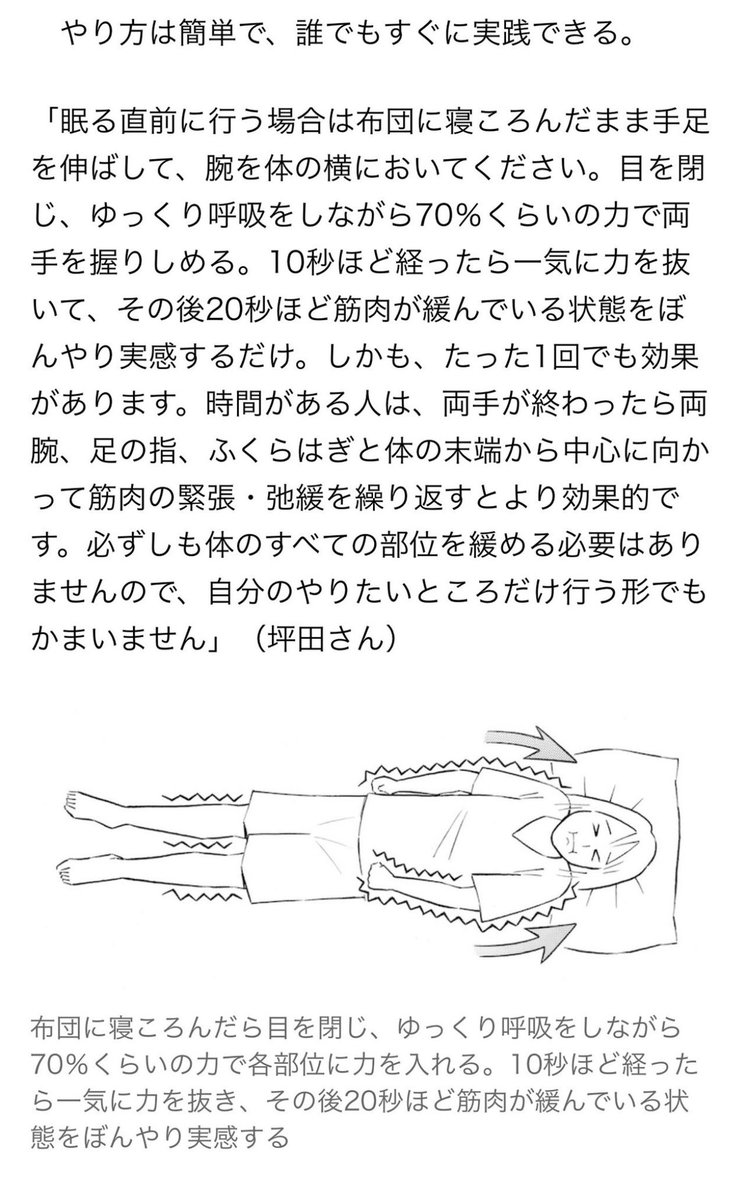 やり方は簡単で、誰でもすぐに実践できる。
「眠る直前に行う場合は布団に寝ころんだまま手足
を伸ばして、腕を体の横においてください。目を閉
じ、ゆっくり呼吸をしながら70％くらいの力で両
手を握りしめる。10秒ほど経ったら一気に力を抜
いて、その後20秒ほど筋肉が緩んでいる状態をぼ
んやり実感するだけ。しかも、たった1回でも効果
があります。時間がある人は、両手が終わったら両
腕、足の指、ふくらはぎと体の末端から中心に向か
って筋肉の緊張・弛緩を繰り返すとより効果的で
す。必ずしも体のすべての部位を緩める必要はあり
ませんので、自分のやりたいところだけ行う形でも
かまいません」（坪田さん）
布団に寝ころんだら目を閉じ、ゆっくり呼吸をしながら
70％くらいの力で各部位に力を入れる。10秒ほど経った
ら一気に力を抜き、その後20秒ほど筋肉が緩んでいる状
態をぼんやり実感する